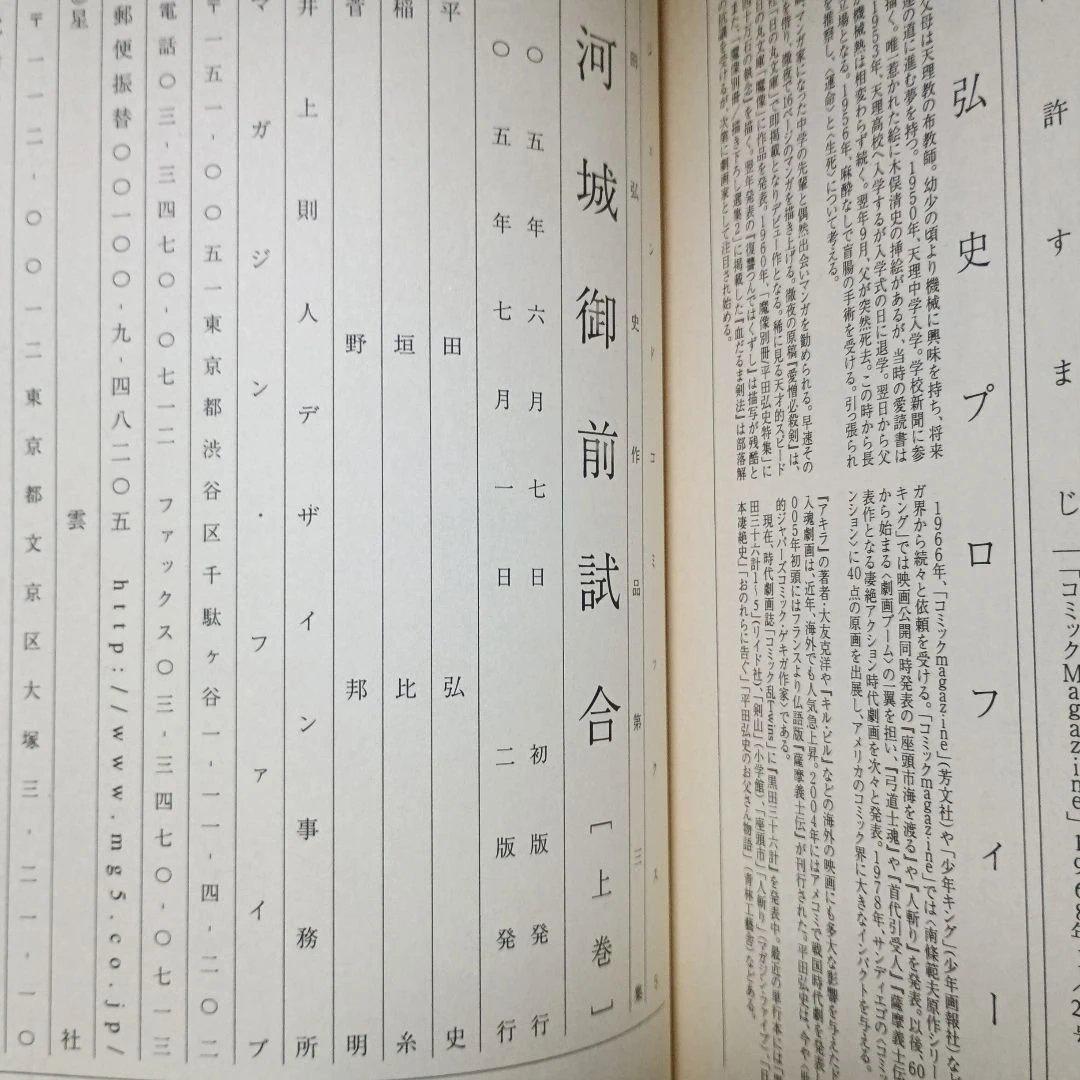 許すまじ──「コミックMagazine」1968年
弘史プロフィー
父母は天理教の布教師。幼少の頃より機械に興味を持ち、将来
の道に進む夢を持つ。1950年、天理中学入学。学校新聞に参
描く。唯一惹かれた絵に木俣清史の挿絵があるが、当時の愛読書は
1953年、天理高校へ入学するが入学式の日に退学。翌日から父
機械熱は相変わらず続く。翌年9月、父が突然死去。この時から長
立場となる。1956年、麻酔なしで盲腸の手術を受ける。引っ張られ
を推察し、〈運命〉と〈生死〉について考える。
マンガ家になった中学の先輩と偶然出会いマンガを勧められる。早速その
を借り、徹夜で16ページのマンガを描き上げる。徹夜の原稿『愛憎必殺剣』は、
「日の丸文庫」で即掲載となりデビュー作となる。稀に見る天才的スピード
日の丸文庫「魔像」に作品を発表。1960年、「魔像別冊/平田弘史特集」に
四十万石の執念』を描く。翌年発表の『復讐つんではくずし』は描写が残酷と
また、「魔像別冊 描き下ろし選集2」に掲載した『血だるま剣法』は部落解
の抗議を受けるが、次第に劇画家として注目され始める。
1966年、「コミックmagazine」(芳文社)や「少年キング」(少年画報社)など
ガ界から続々と依頼を受ける。「コミックmagazine」では〈南條範夫原作シリー
キング」では映画公開同時発表の『座頭市海を渡る』や『人斬り』を発表。以後、60
から始まる〈劇画ブーム〉の一翼を担い、『弓道士魂』や『首代引受人』『薩摩義士伝
表作となる凄絶アクション時代劇画を次々と発表。1978年、サンディエゴの〈コミ
ンション〉に40点の原画を出展し、アメリカのコミック界に大きなインパクトを与える。
『アキラ』の著者・大友克洋や『キル・ビル』などの海外の映画にも多大な影響を与えた
入魂劇画は、近年、海外でも人気急上昇。2004年にはアメコミで戦国時代劇を発表し
005年初頭にはフランスより仏語版『薩摩義士伝』が刊行された。平田弘史は、今や〈世
的ジャパニーズコミック・ゲキガ作家〉である。
現在、時代劇画誌「コミック乱Twins」に『黒田三十六計』を発表中。最近の単行本には『黒
田三十六計1~5』(リイド社)、『剣山』(小学館)、『座頭市』『人斬り』(マガジン・ファイブ)、『日
本凄絶史』『おのれらに告ぐ』『平田弘史のお父さん物語』(青林工藝舎)などある。
田弘史作品第三集
河城御前試合[上巻]
〇五年六月七日 初版発行
〇五年七月一日 二版発行
平田弘史
稲垣比糸
菅野邦明
井上則人デザイン事務所
マガジン・ファイブ
〒一五一-〇〇五一東京都渋谷区千駄ヶ谷一-一一-四-二〇二
電話〇三-三四七〇-〇七一二 ファックス〇三-三四七〇-〇七一三
郵便振替〇〇一〇〇-九-四八二〇五 http://www.mg5.co.jp/
星雲社
〒一一二-〇〇一二東京都文京区大塚三-二一-一〇